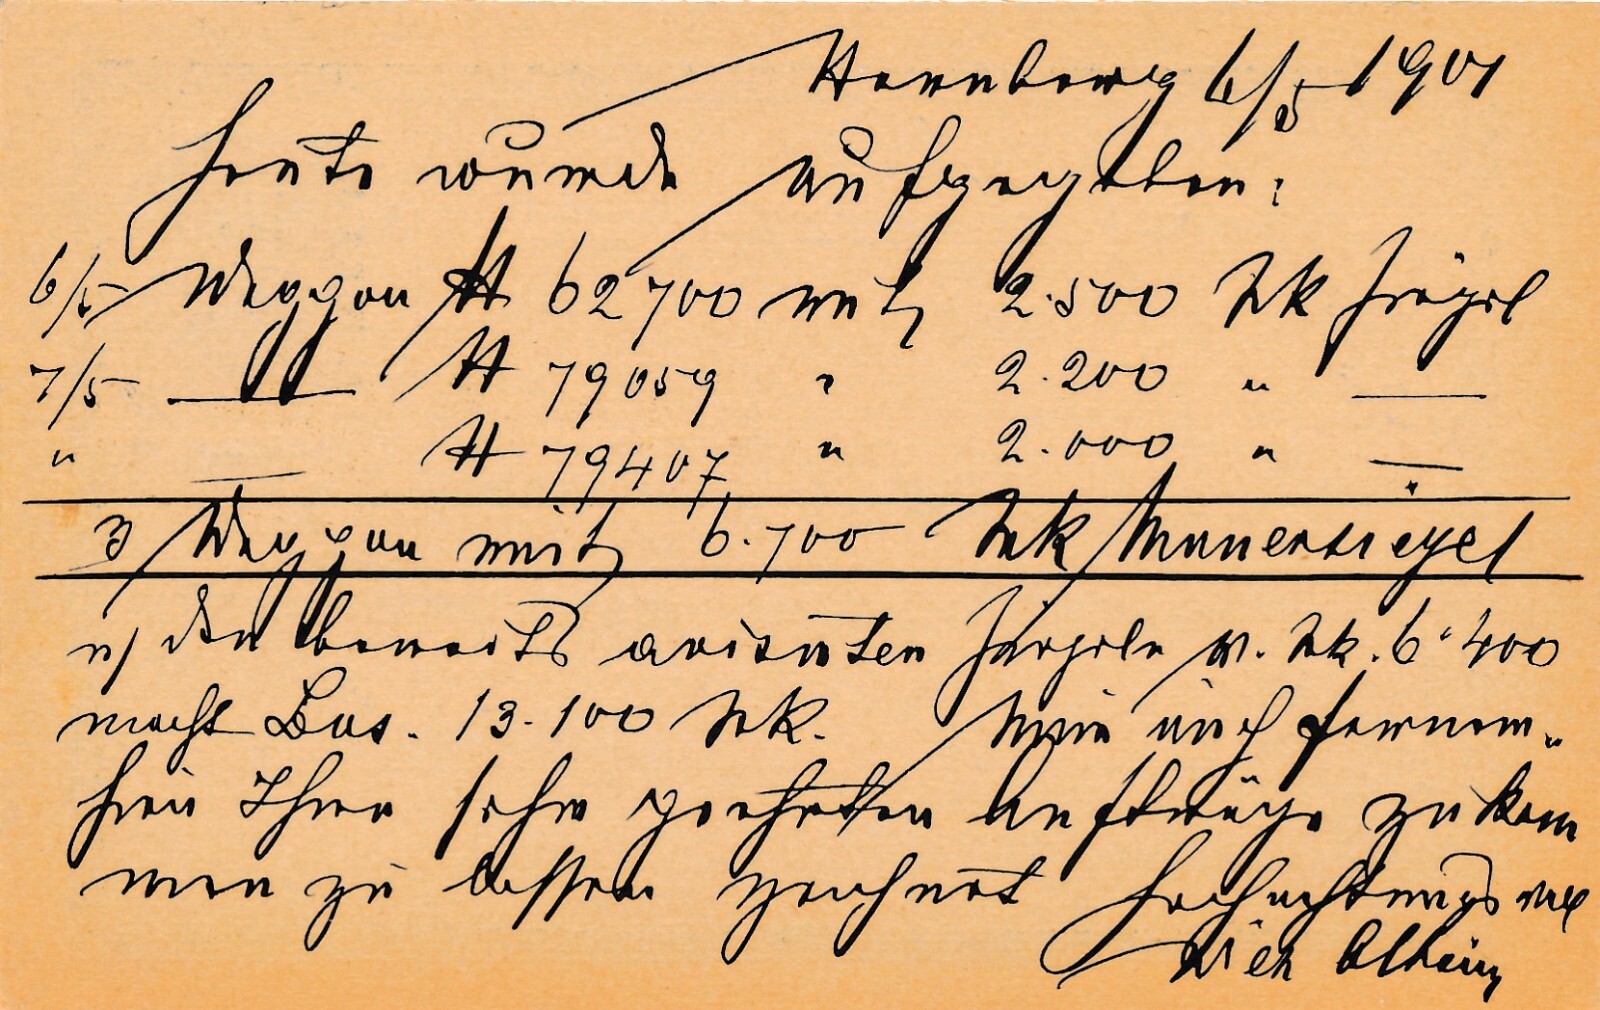 Hornberg 6/5 1901
Heute wurde aufgegeben:
6/5 Waggon 62700 mit 2.500 Stk Ziegel
7/5 — 79059 " 2.200 " —
" — 79407 " 2.000 " —
3 Waggon mit 6.700 Stk Mauerziegel
den bereits avisirten Ziegeln v. Stk. 6.400
macht Sus. 13.100 Stk. Mir auch fernem-
hin Ihre sehr geehrten Aufträge zukom
men zu lassen zeichnet Hochachtungsvoll